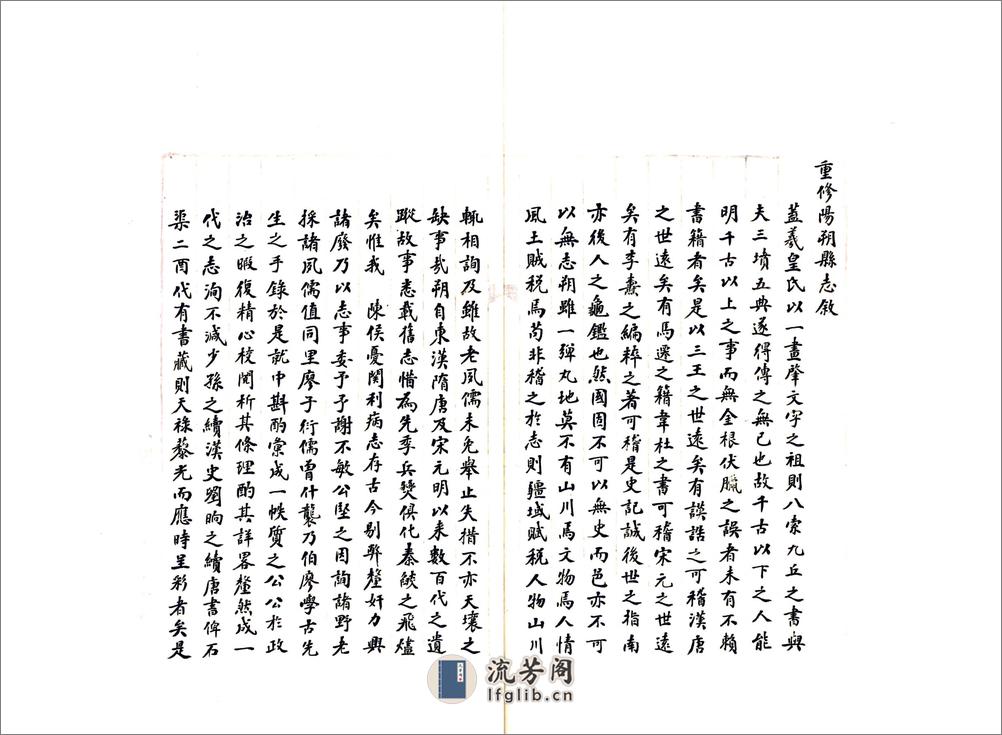 重修陽朔縣志敘
蓋羲皇氏以一畫肇文字之祖則八索九丘之書與
夫三墳五典遂得傳之無已也故千古以下之人能
明千古以上之事而無金根伏臘之誤者未有不賴
書籍者矣是以三王之世遠矣有謨誥之可稽漢唐
之世遠矣有馬遷之籍韋杜之書可稽宋元之世遠
矣有李燾之編粹之著可稽是史記誠後世之指南
亦後人之龜鑑也然國固不可以無史而邑亦不可
以無志朔雖一彈丸地莫不有山川焉文物焉人情
風土賊稅焉苟非稽之於志則疆域賦稅人物山川
輒相詢及雖故老夙儒未免舉止失措不亦天壤之
缺事哉朔自東漢隋唐及宋元明以来數百代之遺
蹤故事悉載舊志惜為先季兵燹俱化秦燄之飛爐
矣惟我 陳侯憂関利病志存古今剔弊釐奸力興
諸廢乃以志事委予予謝不敏公堅之因詢諸野老
採諸夙儒值同里廖于衍儒曾什襲乃伯廖學古先
生之手錄於是就中斟酌彙成一帙質之公公於政
治之暇復精心校閱析其條理酌其詳畧釐然成一
代之志洵不減少孫之續漢史劉昫之續唐書俾石
渠二酉代有書藏則天祿藜光而應時呈彩者矣是
流芳阁
lfglib.cn